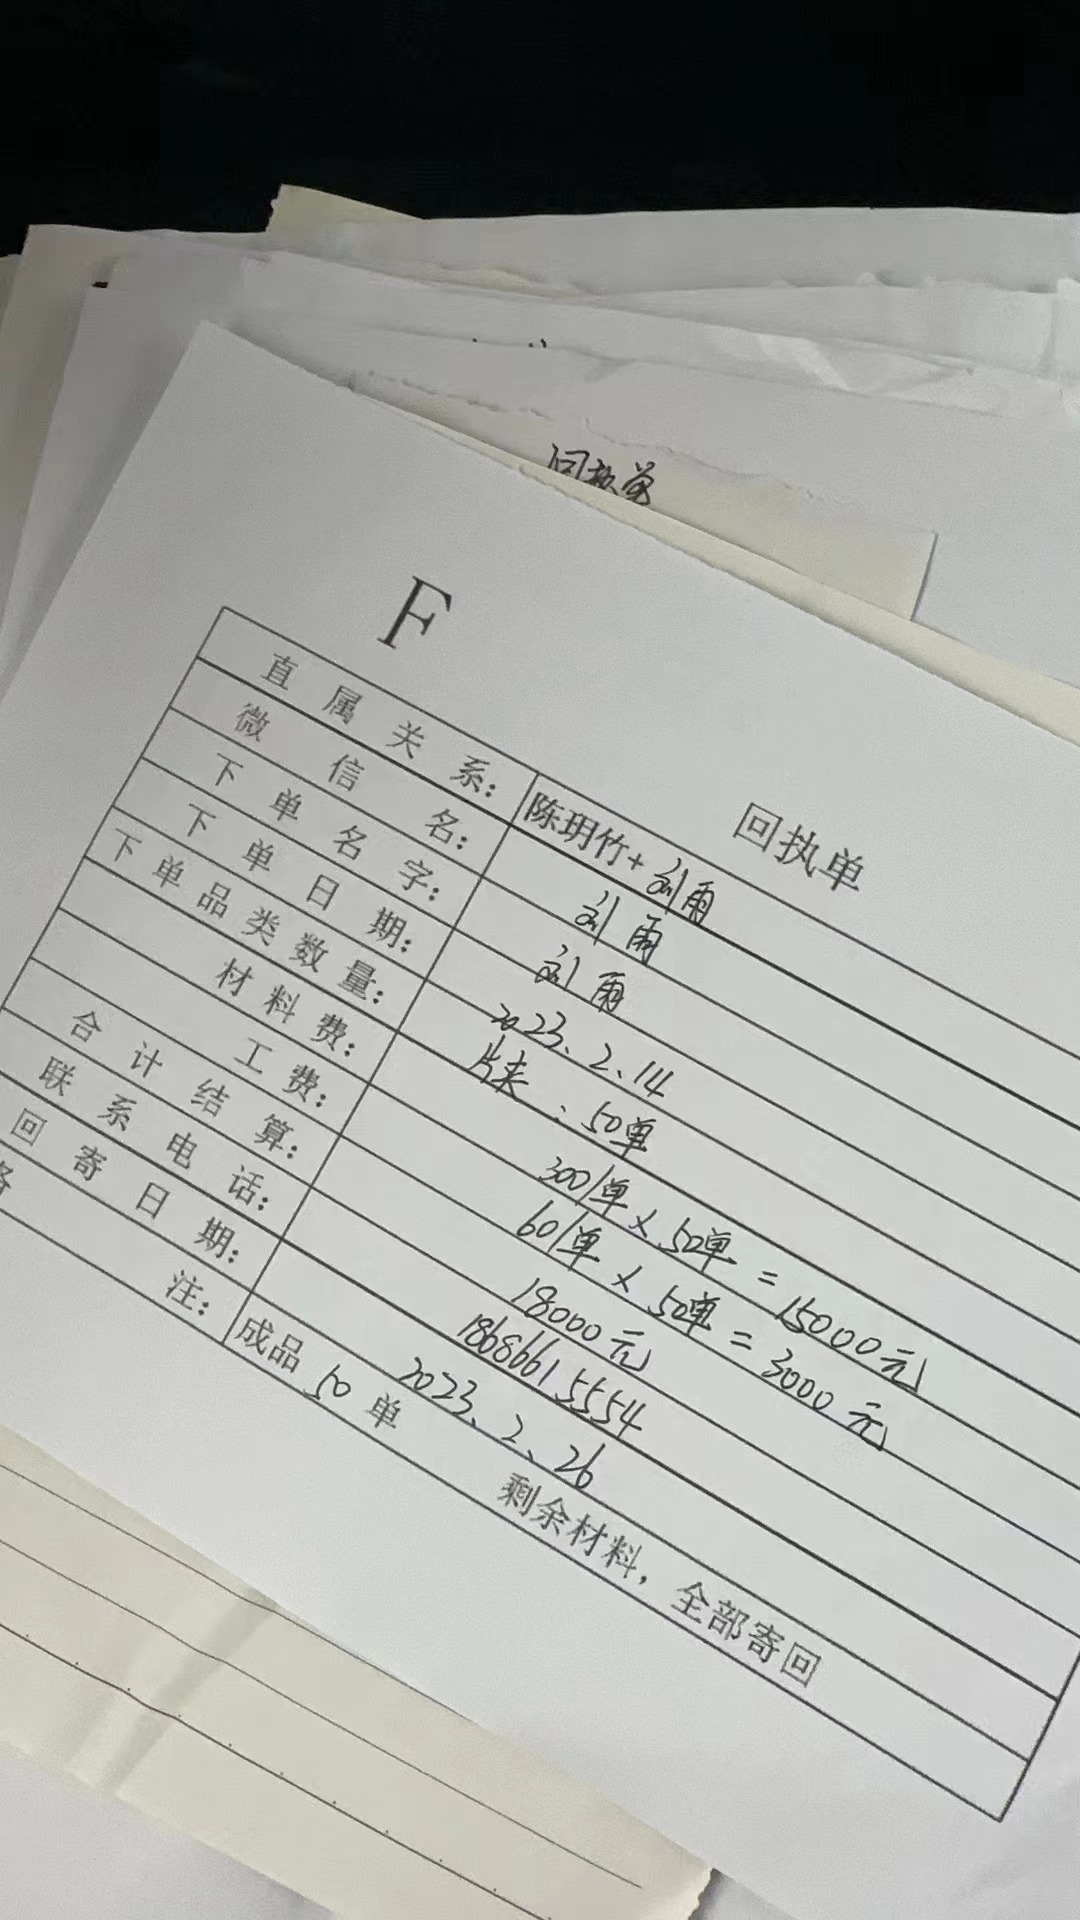 回执单
F
回执单
直属关系: 陈玥竹+刘雨
微信名: 刘雨
下单名字: 刘雨
下单日期: 2023、2、14
下单品类数量: 片夹:50单
材料费: 300/单×50单=15000元
工费: 60/单×50单=3000元
合计结算: 18000元
联系电话: 18686615554
回寄日期: 2023、2、26
备注: 成品50单 剩余材料，全部寄回